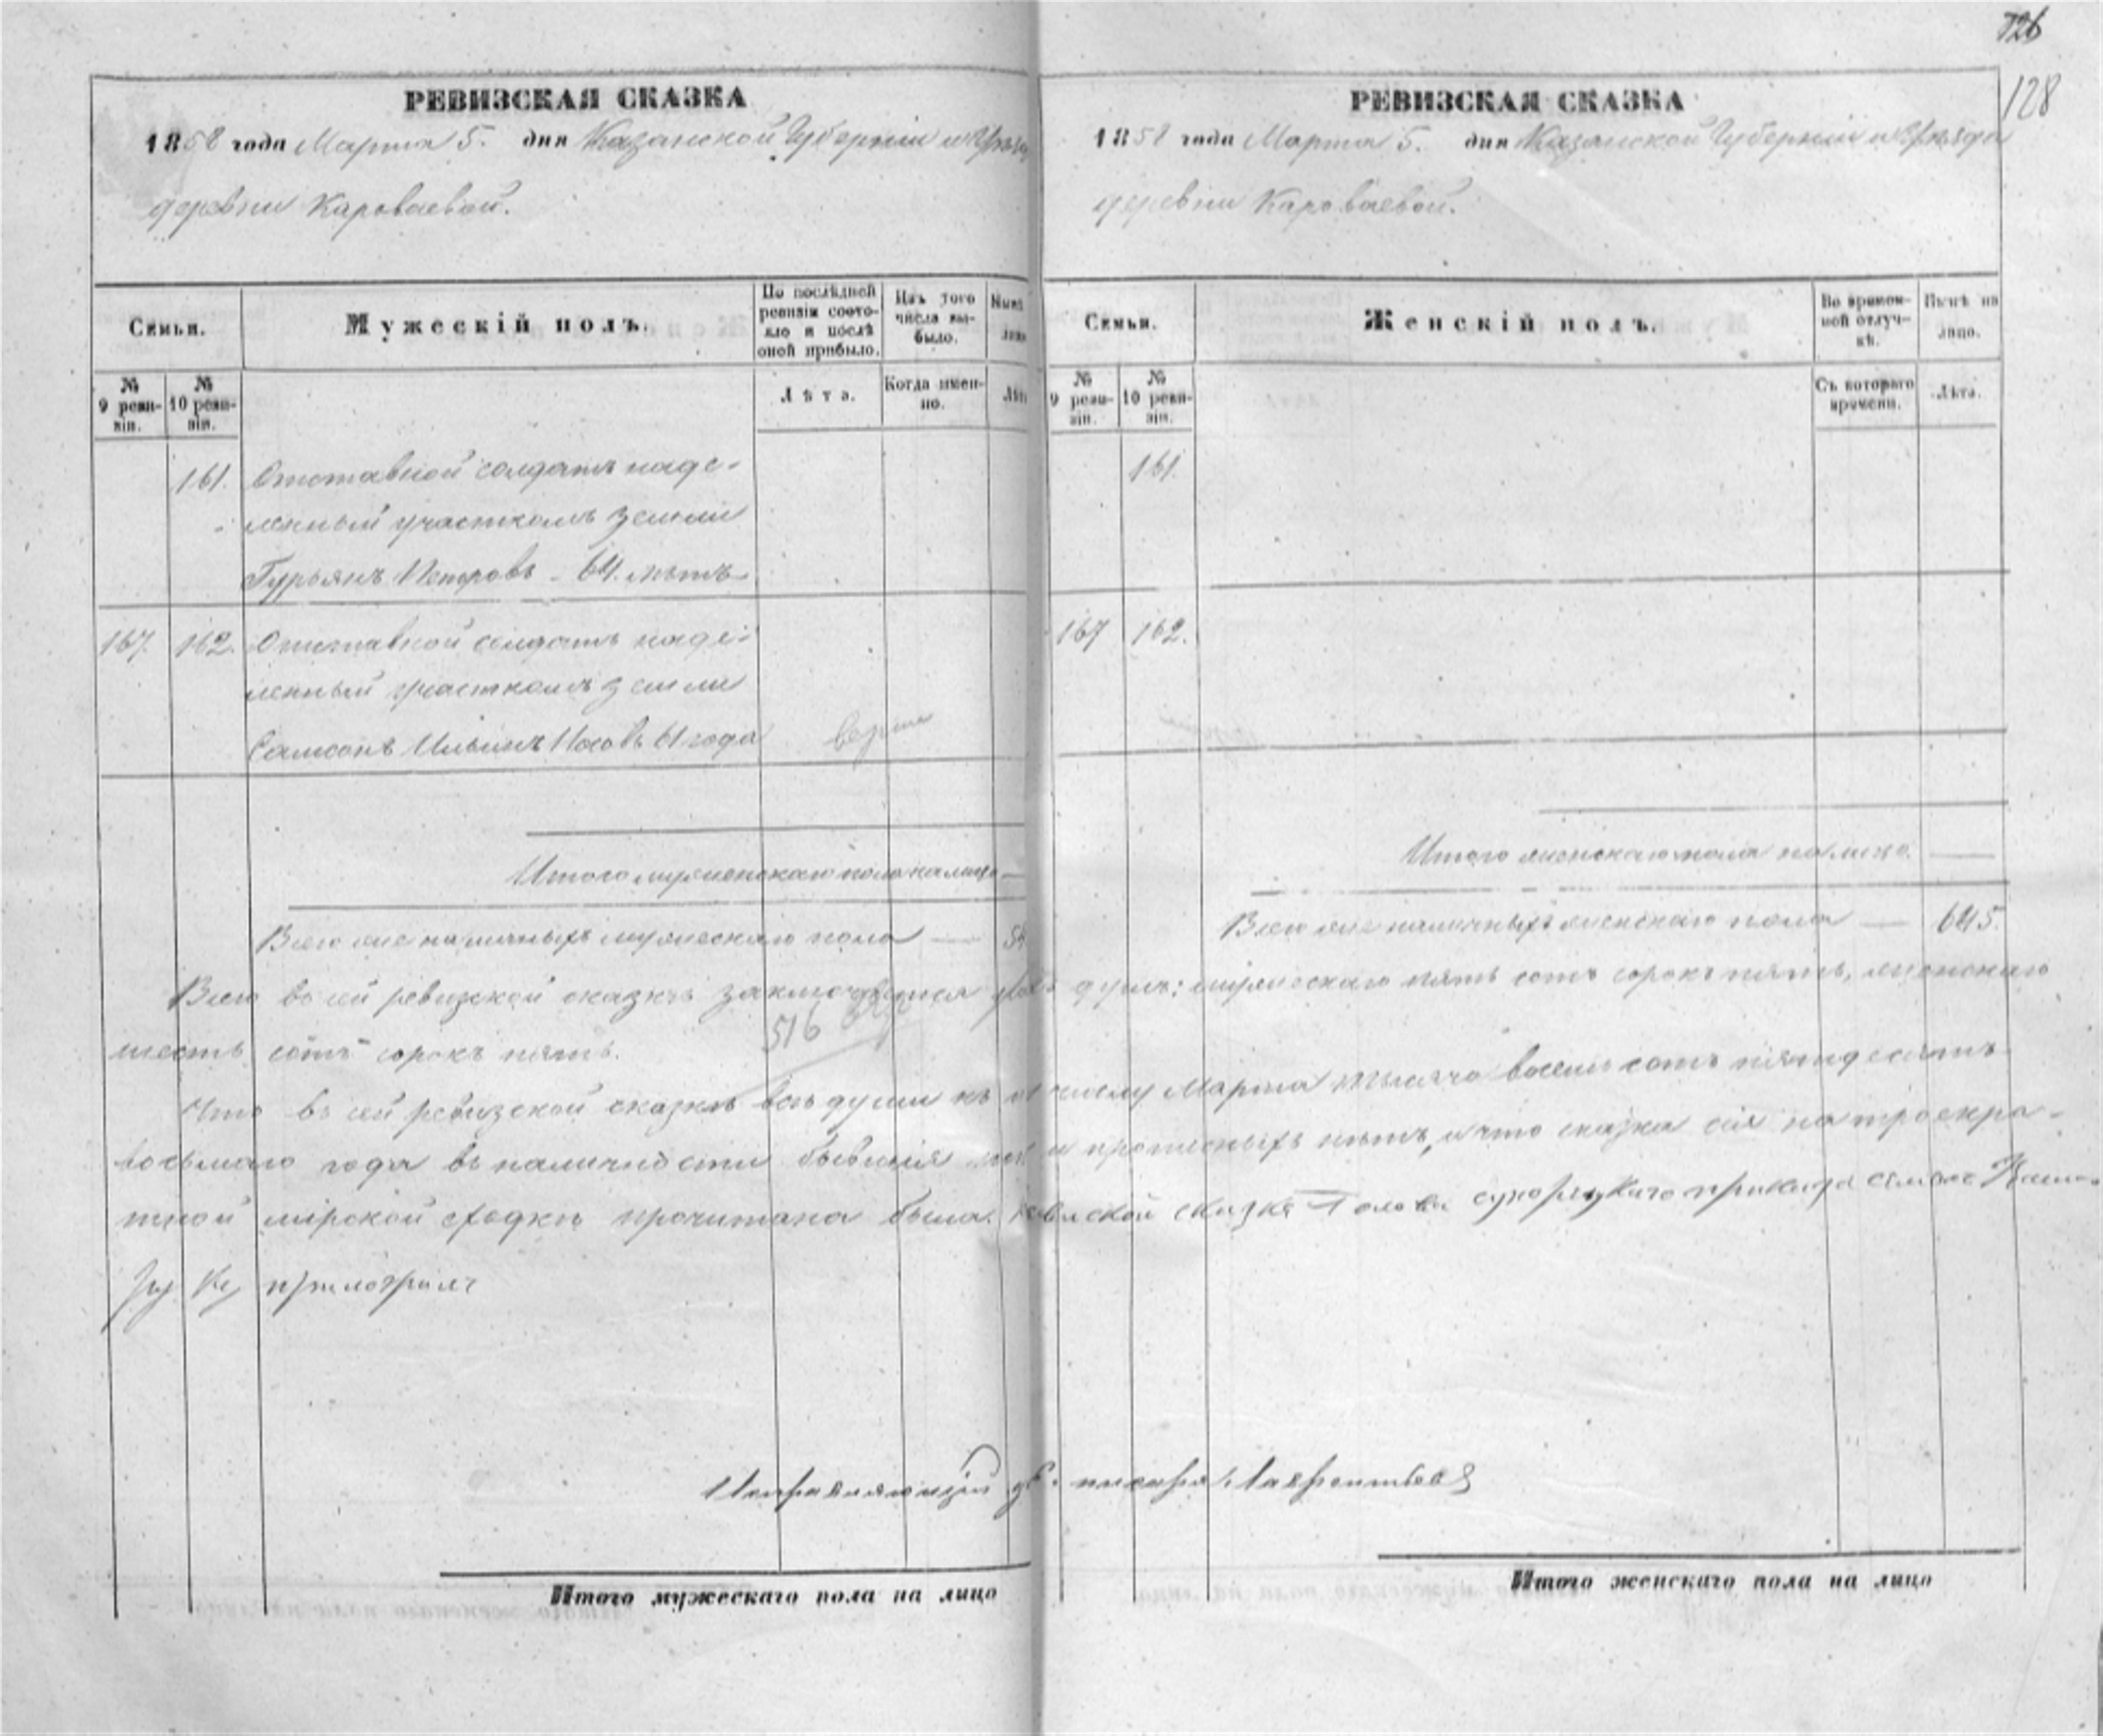 126
128
РЕВИЗСКАЯ СКАЗКА
1858 года Марта 5. дня Казанской Губерніи и Уѣзда
деревни Караваевой.
Семьи.
Мужескій полъ.
По послѣдней ревизіи состояло и послѣ оной прибыло.
Изъ того числа выбыло.
Нынѣ
№ 9 ревизіи.
№ 10 ревизіи.
Лѣта.
Когда именно.
161. Отставной солдатъ наде-
ленный участкомъ земли
Гурьянъ Петровъ - 64. лѣтъ
167. 162. Отставной солдатъ наде-
ленный участкомъ земли
Самсонъ Ильинъ Носовъ 61 года
Итого мужескаго пола на лицо —
Всего же наличныхъ мужескаго пола —
РЕВИЗСКАЯ СКАЗКА
1858 года Марта 5. дня Казанской Губерніи и Уѣзда
деревни Караваевой.
Семьи.
Женскій полъ.
Во временной отлучкѣ.
Нынѣ на лицо.
№ 9 ревизіи.
№ 10 ревизіи.
Съ котораго времени.
Лѣта.
161.
167 162.
Итого женскаго пола на лицо. —
Всего же наличныхъ женскаго пола — 645.
Всего въ сей ревизской сказкѣ заключается душъ: мужескаго пять сотъ сорокъ пять, женскаго
516
шесть сотъ сорокъ пять.
Что въ сей ревизской сказкѣ всѣ души къ числу Марта тысяча восемь сотъ пятьдесятъ
восьмаго года въ наличности бывшія и прописныхъ нѣтъ, и что сказка сія на троекра-
тной мірской сходкѣ прочитана была. сказкѣ Голова приказа
приложилъ
Исправляющій д. писаря Лаврентьевъ
Итого мужескаго пола на лицо
Итого женскаго пола на лицо